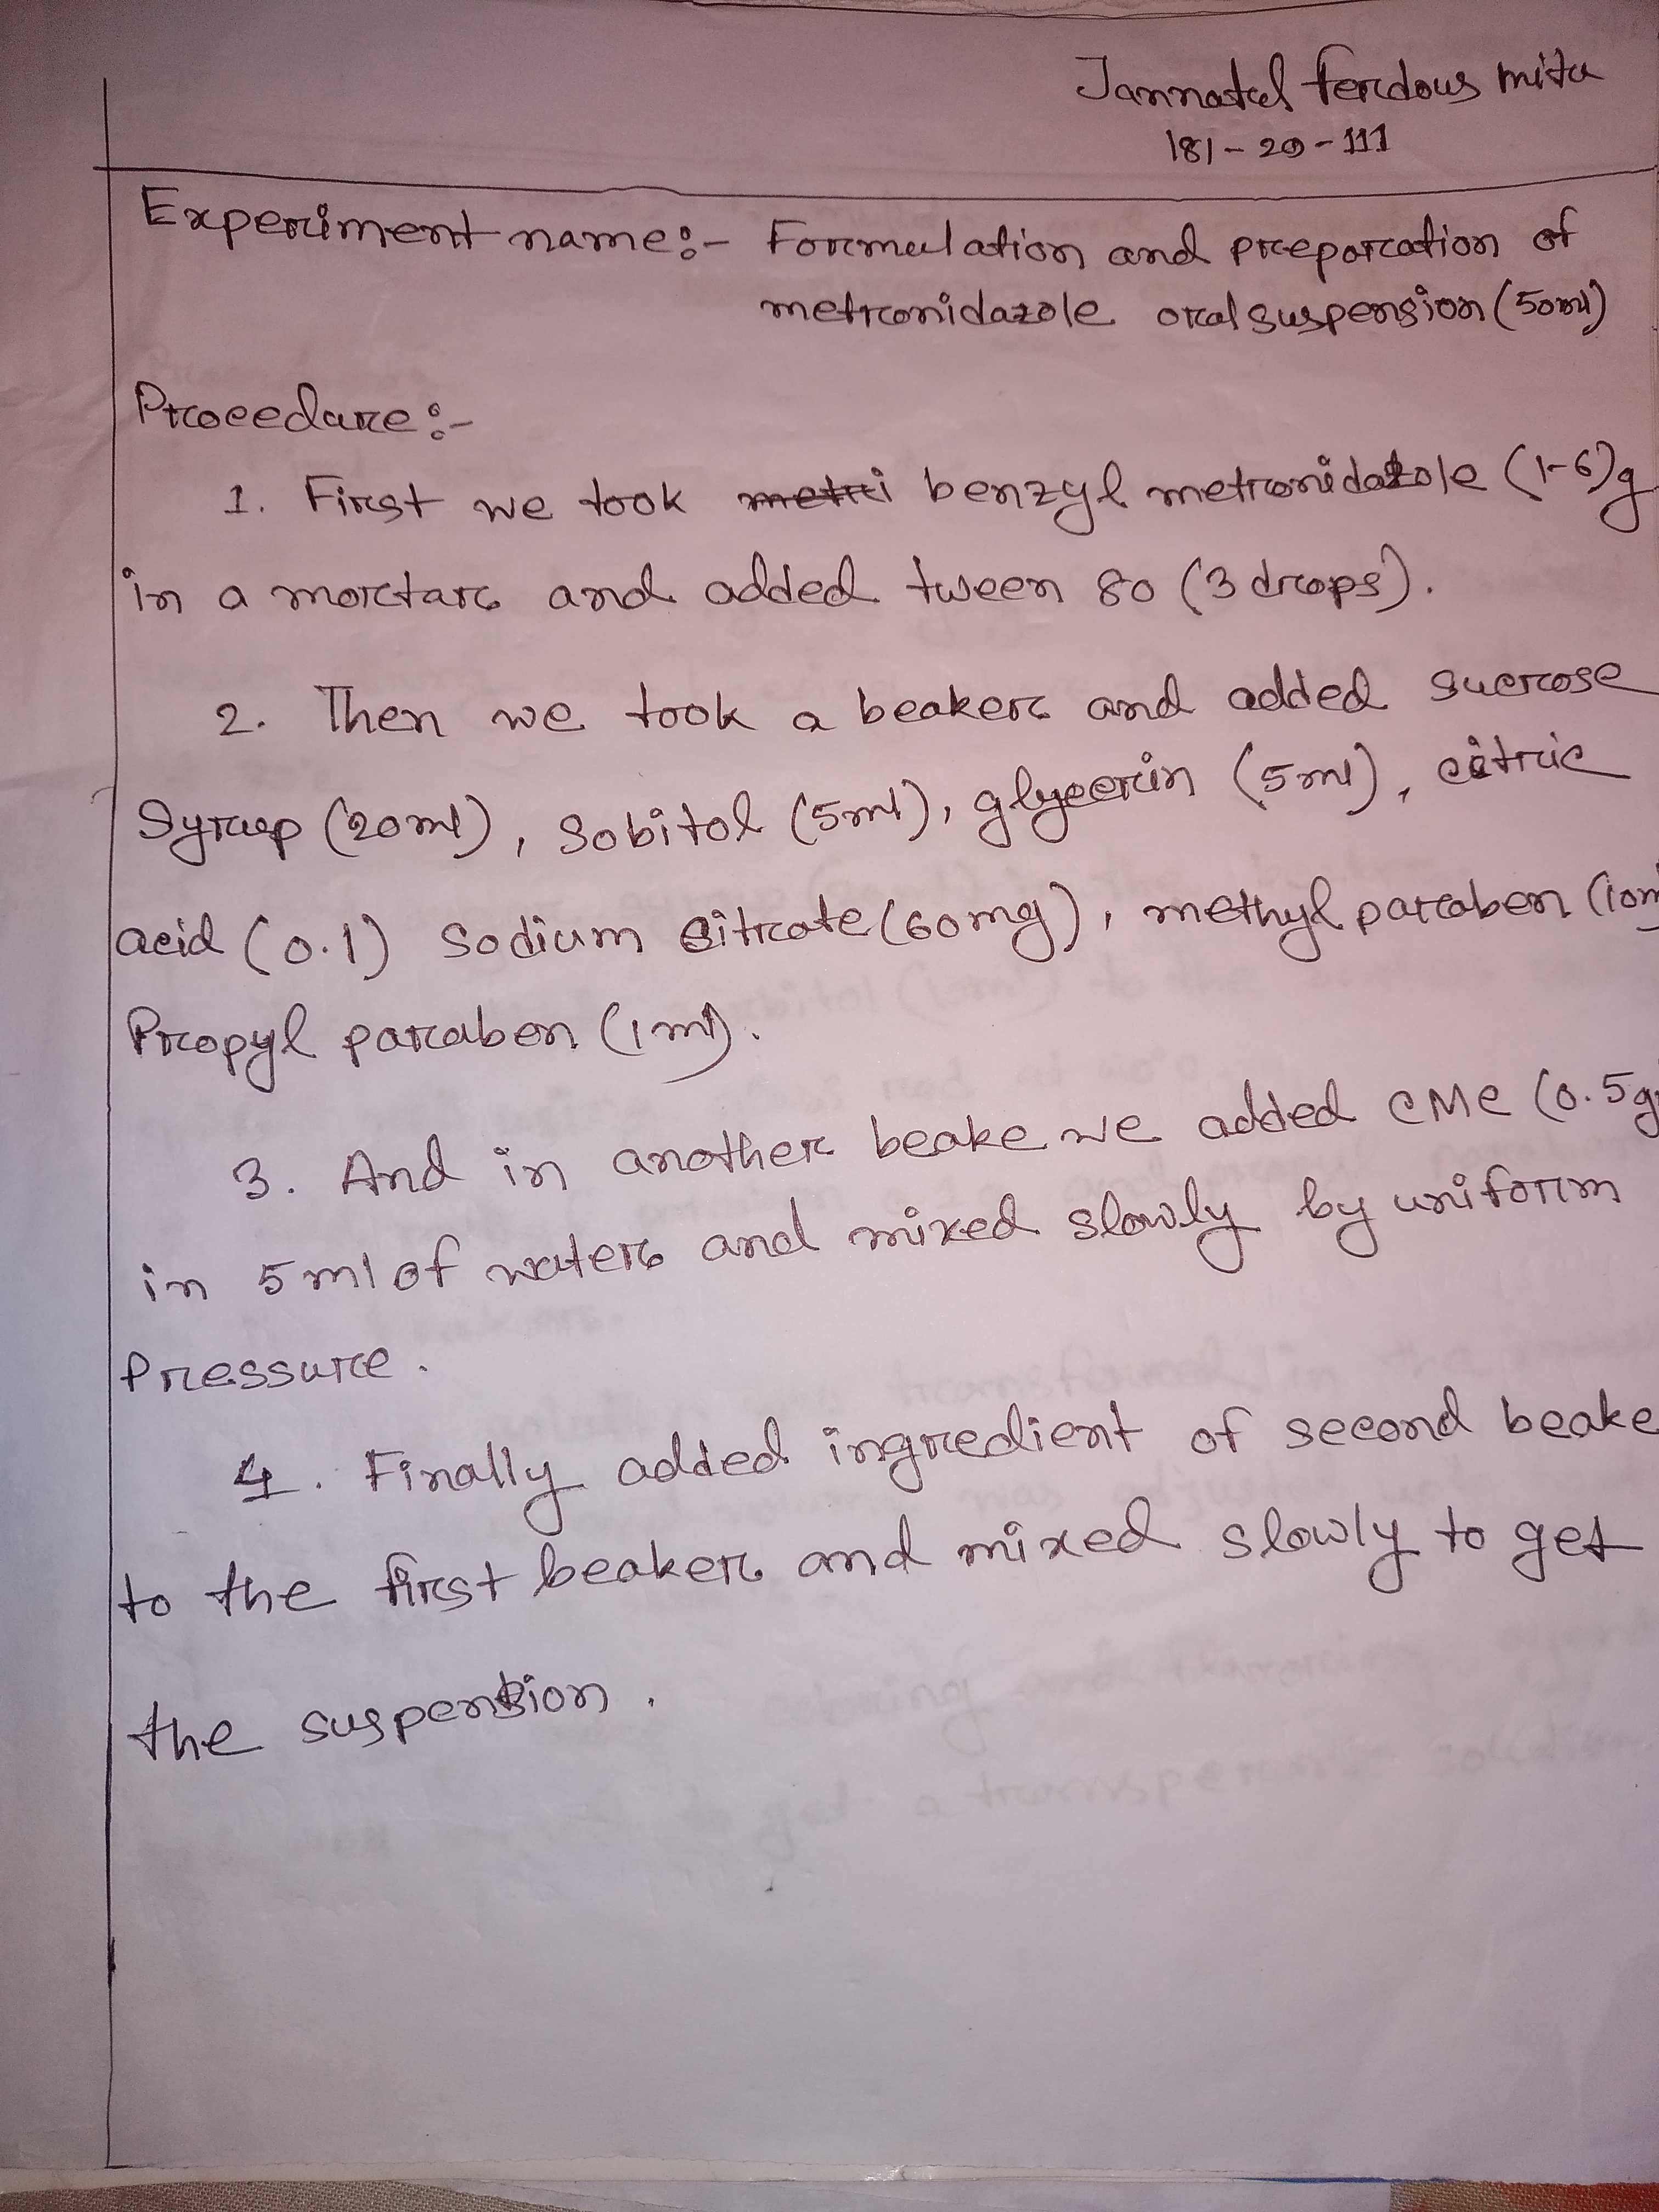 Jannatul ferdous mitu
181-29-111
Experiment name:- Formulation and preparation of
metronidazole oral suspension (50ml)
Procedure:-
1. First we took benzyl metronidazole (1-6)g
in a mortar and added tween 80 (3 drops).
2. Then we took a beaker and added sucrose
Syrup (20ml), Sobitol (5ml), glycerin (5ml), citric
acid (0.1) Sodium citrate (60mg), methyl paraben (10m
Propyl paraben (1ml).
3. And in another beake we added CMC (0.5g
in 5ml of water and mixed slowly by uniform
Pressure.
4. Finally added ingredient of second beake
to the first beaker and mixed slowly to get
the suspension.